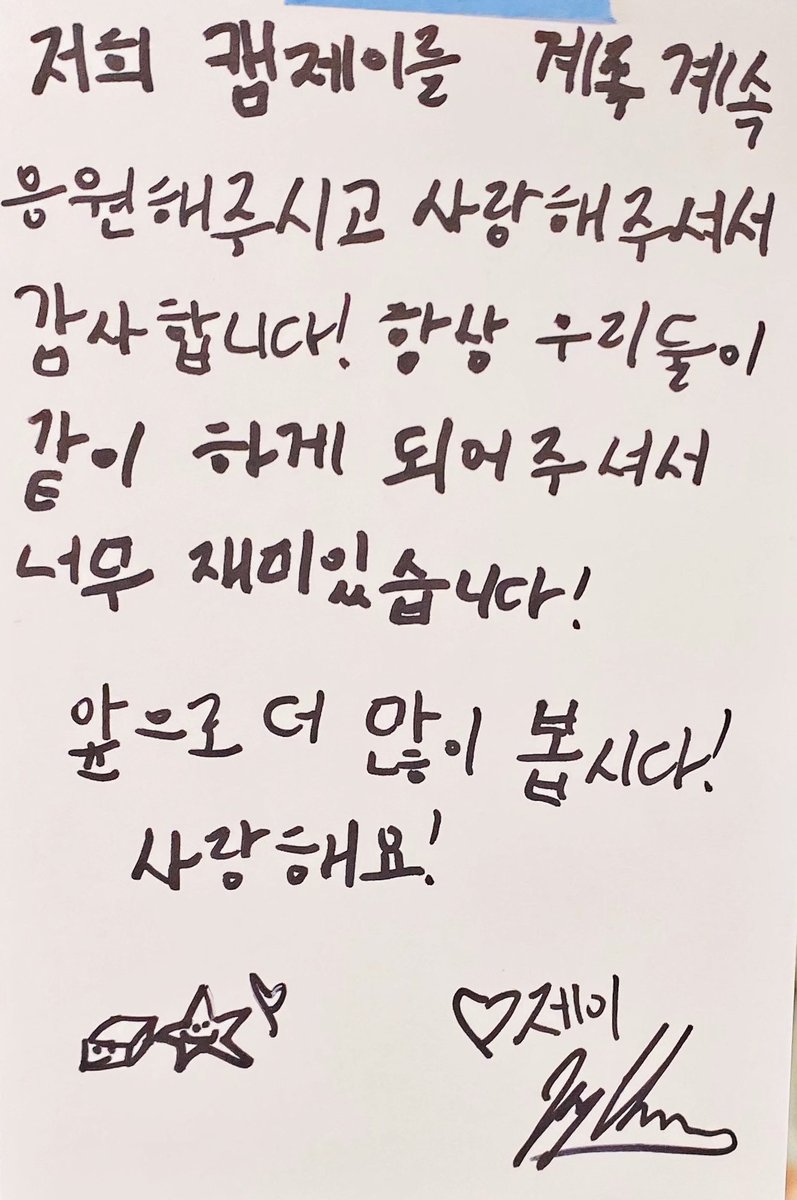 저희 캠제이를 계속 계속
응원해주시고 사랑해주셔서
감사합니다! 항상 우리들이
같이 하게 되어주셔서
너무 재미있습니다!
앞으로 더 많이 봅시다!
사랑해요!
♡제이